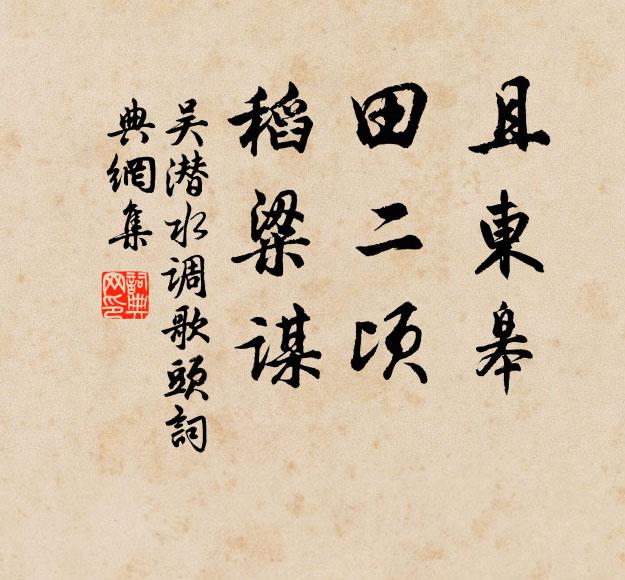 且東皋
田二頃
稻粱謀
吴潜水调歌頭詞
典網集
詞典網印